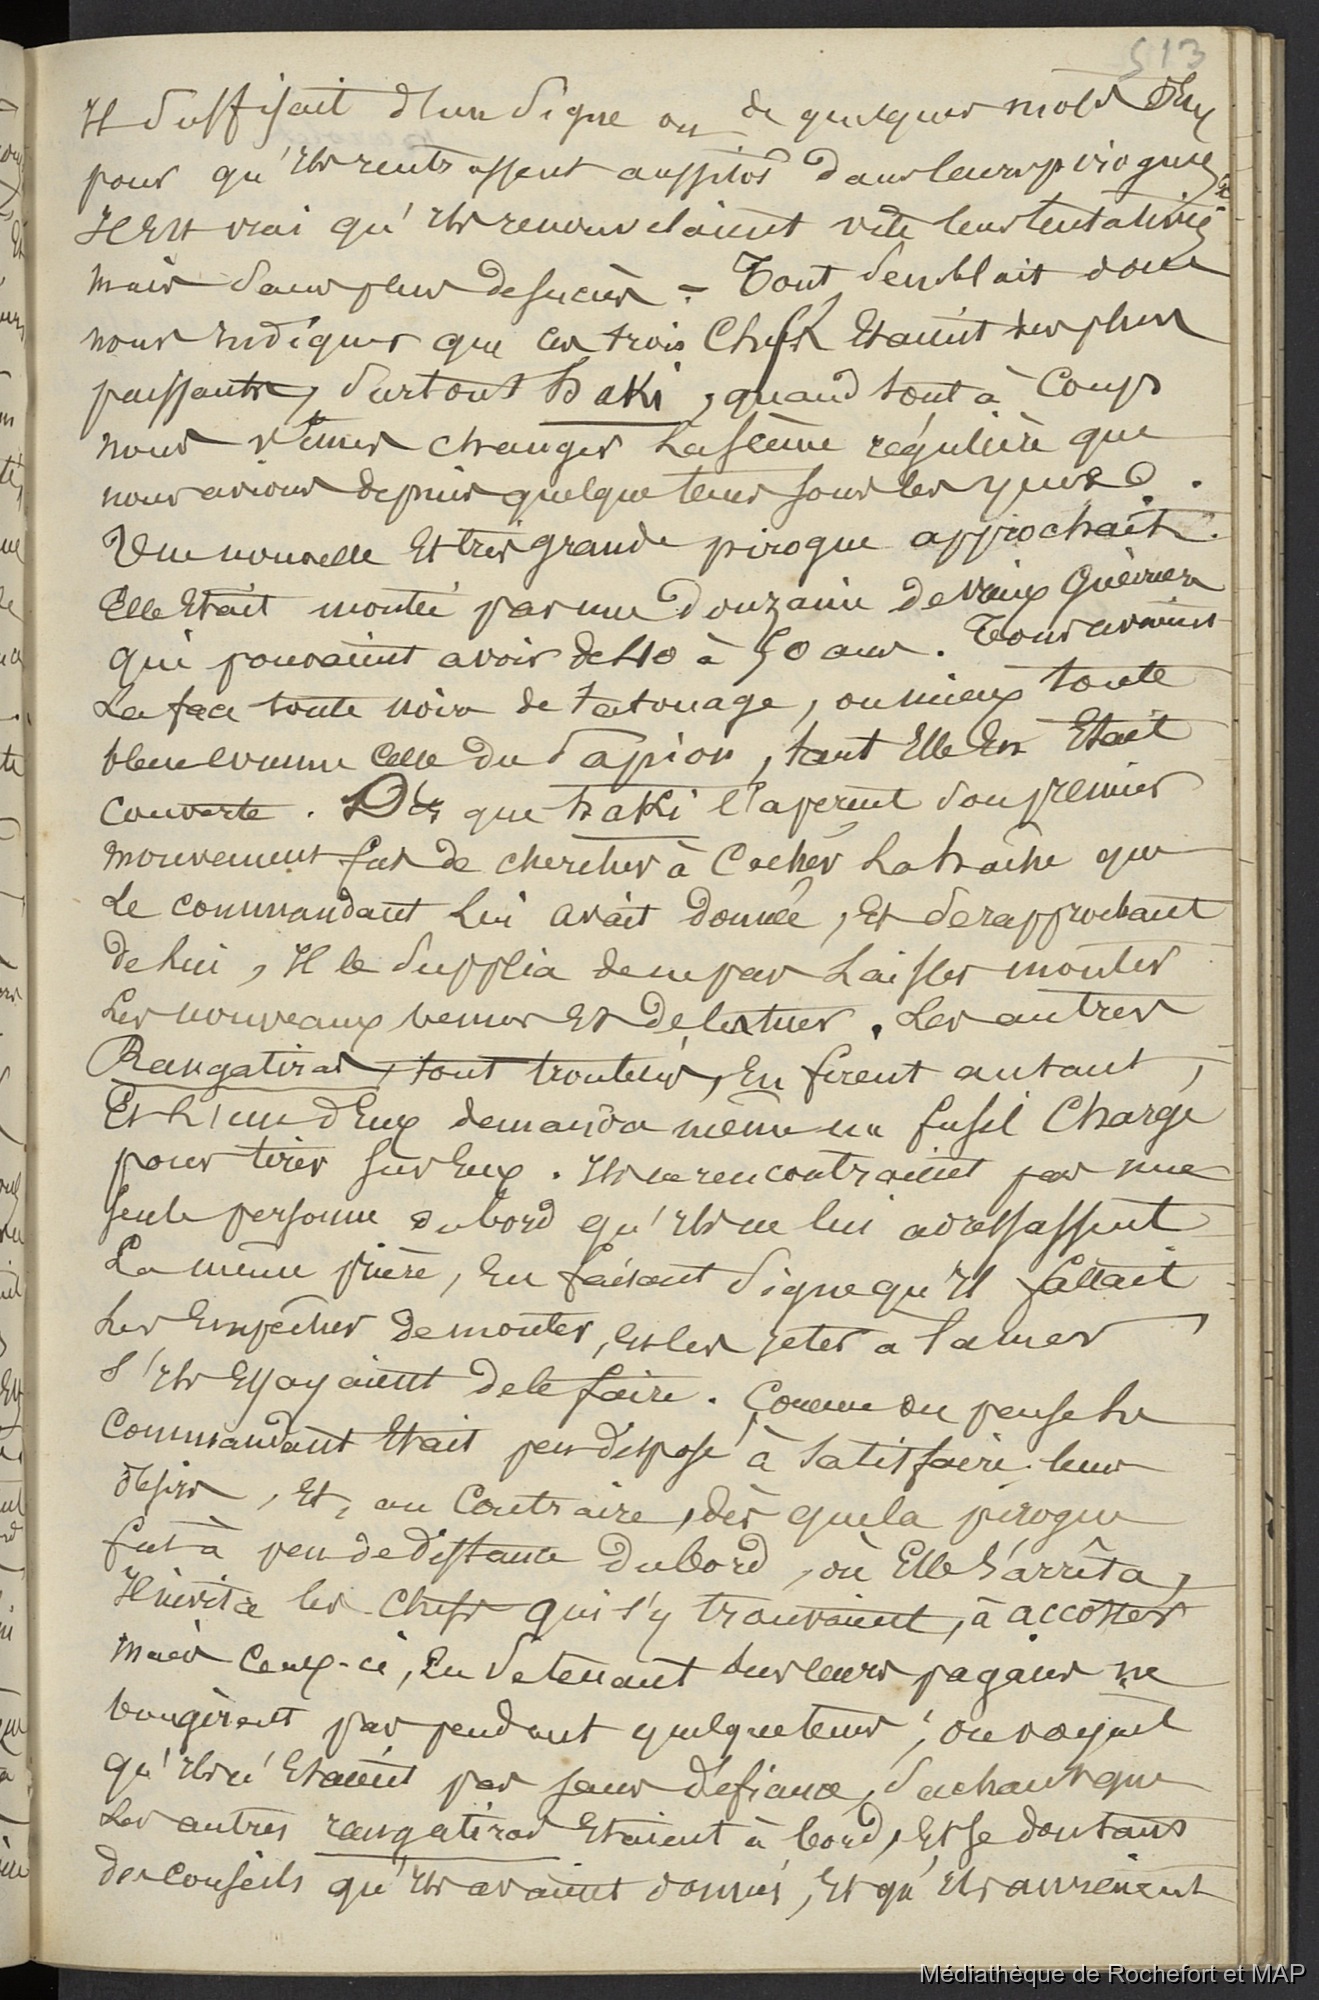 513
Il suffisait d'un signe ou de quelques mots
pour qu'ils rentrassent aussitôt dans leurs pirogues,
Il est vrai qu'ils renouvelaient vite leurs tentatives
mais sans plus de succès - Tout semblait donc
nous indiquer que ces trois chefs étaient des plus
puissants, surtout Haki, quand tout à coup
nous vîmes changer la scène régulière que
nous avions depuis quelque tems sous les yeux.
Une nouvelle et très grande pirogue approchait.
Elle était montée par une douzaine de vieux guèrriers
qui pouvaient avoir de 40 à 50 ans. Tous avaient
la face toute noire de tatouage, ou mieux toute
bleue comme celle du Papion, tant elle en était
couverte. Dès que haki l'aperçut son premier
mouvement fut de chercher à cacher la hache que
le commandant lui avait donnée, et se rapprochant
de lui, il le supplia de ne pas laisser monter
les nouveaux venus et de les tuer. Les autres
Rangatiras, tout troublés, en firent autant,
et l'un d'eux demanda même un fusil chargé
pour tirer sur eux. Ils ne rencontraient pas une
seule personne du bord qu'ils ne lui adressassent
la même prière, en faisant signe qu'il fallait
les empêcher de monter, et les jeter à la mer
s'ils essayaient de le faire. Comme on pense le
commandant était peu disposé à satisfaire leur
désirs, et, au contraire, dès que la pirogue
fut à peu de distance du bord, où elle s'arrêta,
il invita les chefs qui s'y trouvaient, à accoster
mais ceux-ci, en se tenant sur leurs pagaies ne
bougèrent pas pendant quelque tems; on voyait
qu'ils n'étaient pas sans défiance, sachant que
les autres rangatiras étaient à bord, et se doutant
des conseils qu'ils avaient donnés, et qu'ils auraient
Médiathèque de Rochefort et MAP